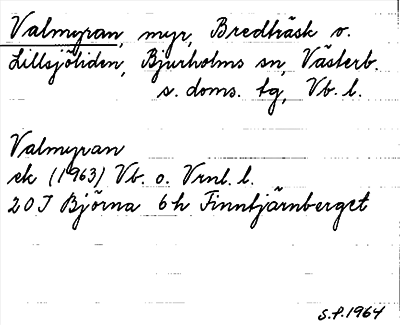 Valmyran, myr, Bredträsk o.
Lillsjöliden, Bjurholms sn, Västerb.
s. doms. tg, Vb. l.
Valmyran
ek (1963) Vb. o. Vrnl. l.
20 J Björna 6h Finntjärnberget
S.P. 1964